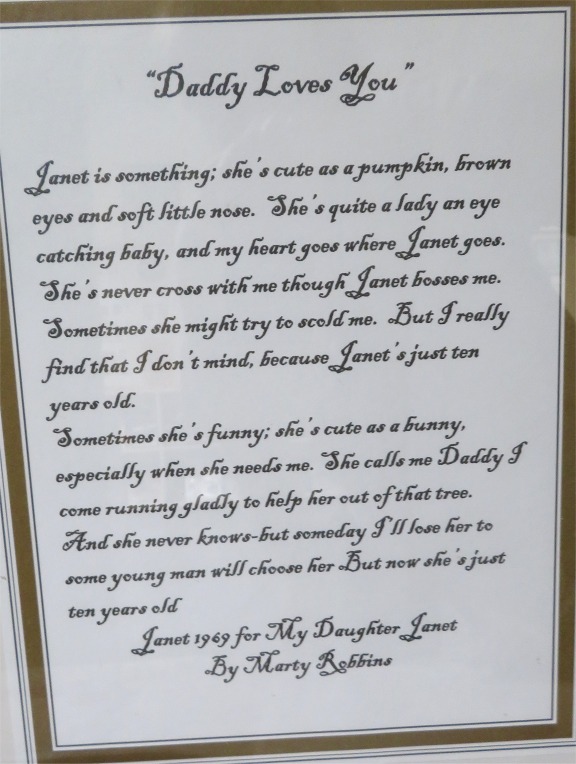 “Daddy Loves You”
Janet is something; she's cute as a pumpkin, brown
eyes and soft little nose. She's quite a lady an eye
catching baby, and my heart goes where Janet goes.
She's never cross with me though Janet bosses me.
Sometimes she might try to scold me. But I really
find that I don't mind, because Janet's just ten
years old.
Sometimes she's funny; she's cute as a bunny,
especially when she needs me. She calls me Daddy I
come running gladly to help her out of that tree.
And she never knows-but someday I'll lose her to
some young man will choose her But now she's just
ten years old
Janet 1969 for My Daughter Janet
By Marty Robbins